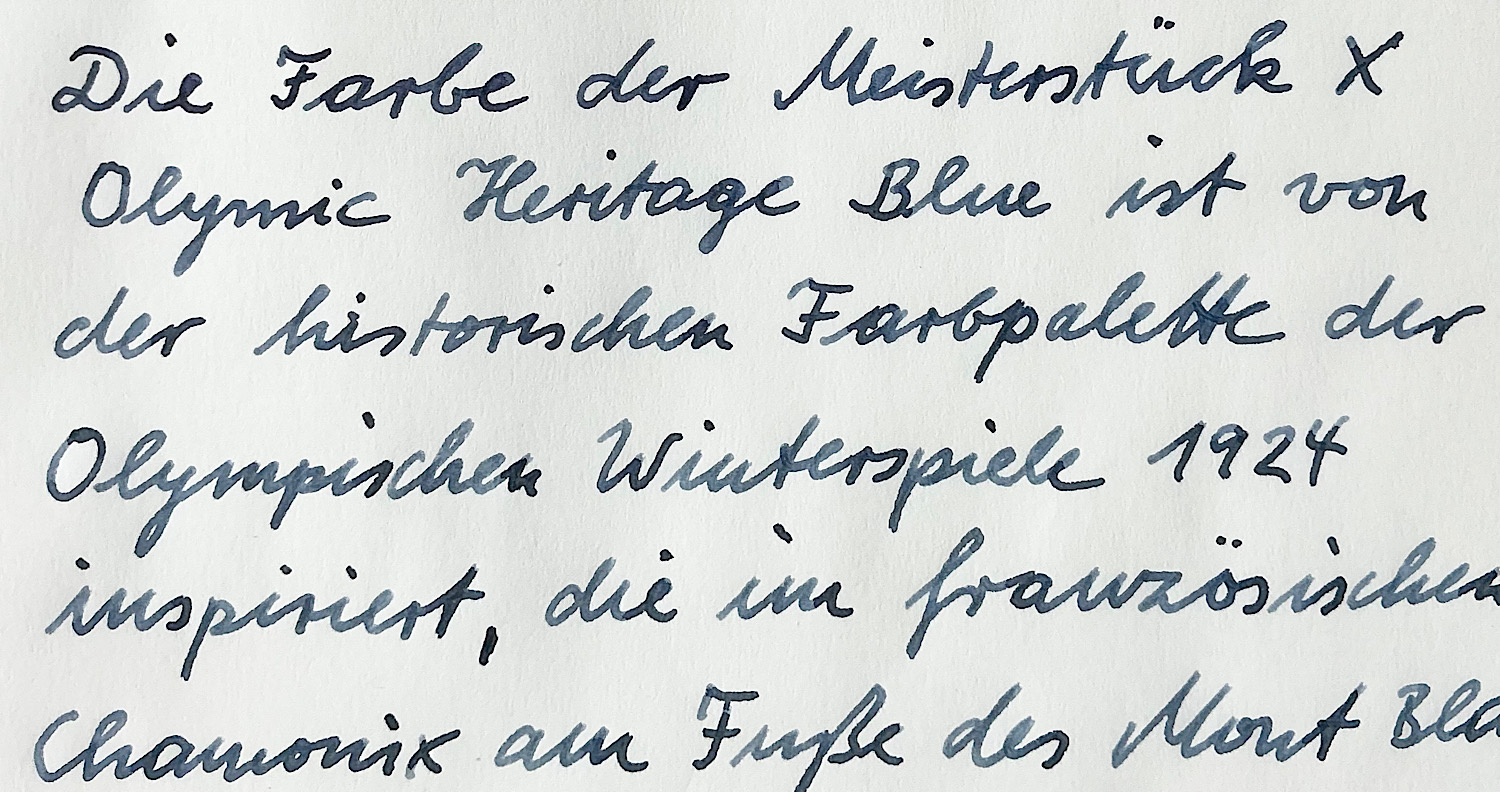 Die Farbe der Meisterstück X
Olymic Heritage Blue ist von
der historischen Farbpalette der
Olympischen Winterspiele 1924
inspiriert, die im französischen
Chamonix am Fuße des Mont Bla